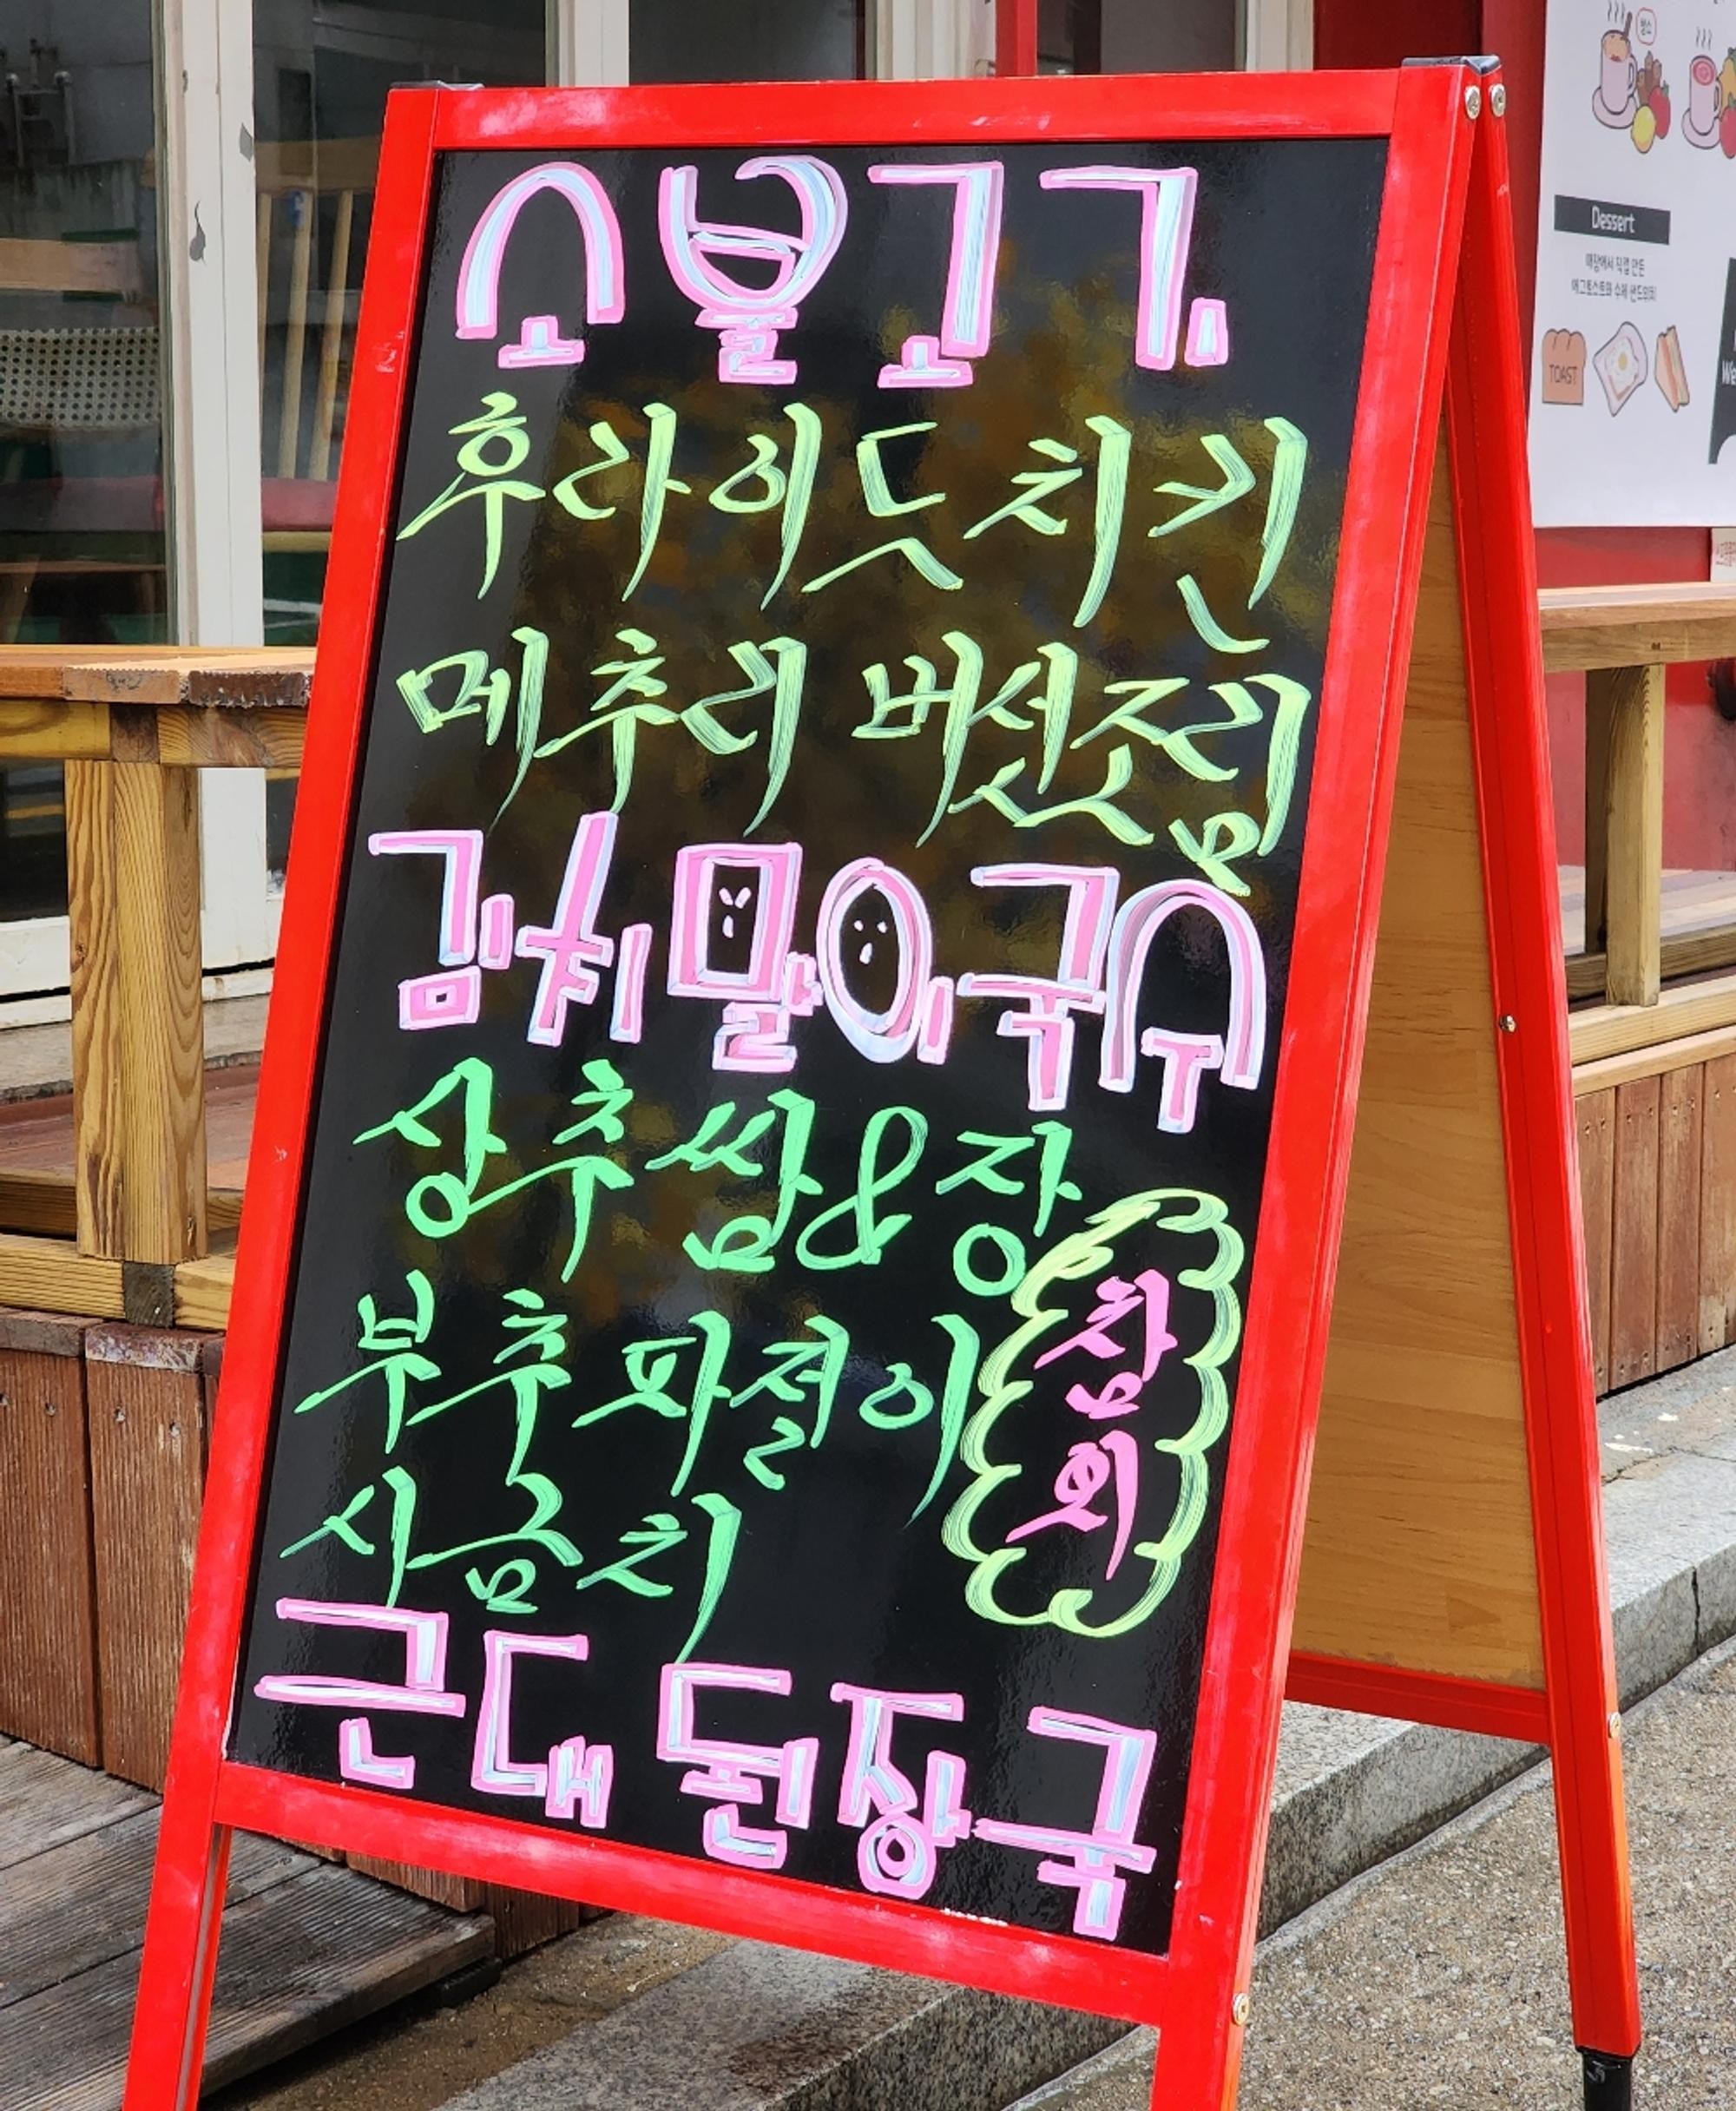 소불고기
후라이드 치킨
메추리 버섯조림
김치말이국수
상추쌈&장
부추 파절이
시금치
참외
근대 된장국
Dessert
매장에서 직접 만든
에그토스트와 수제 샌드위치
TOAST